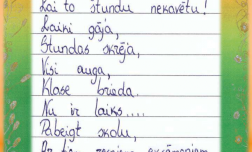 Lai to stundu nekavētu!
Laiki gāja,
Stundas skrēja,
Visi auga,
Klase brieda.
Nu ir laiks....
Pabeigt skolu,